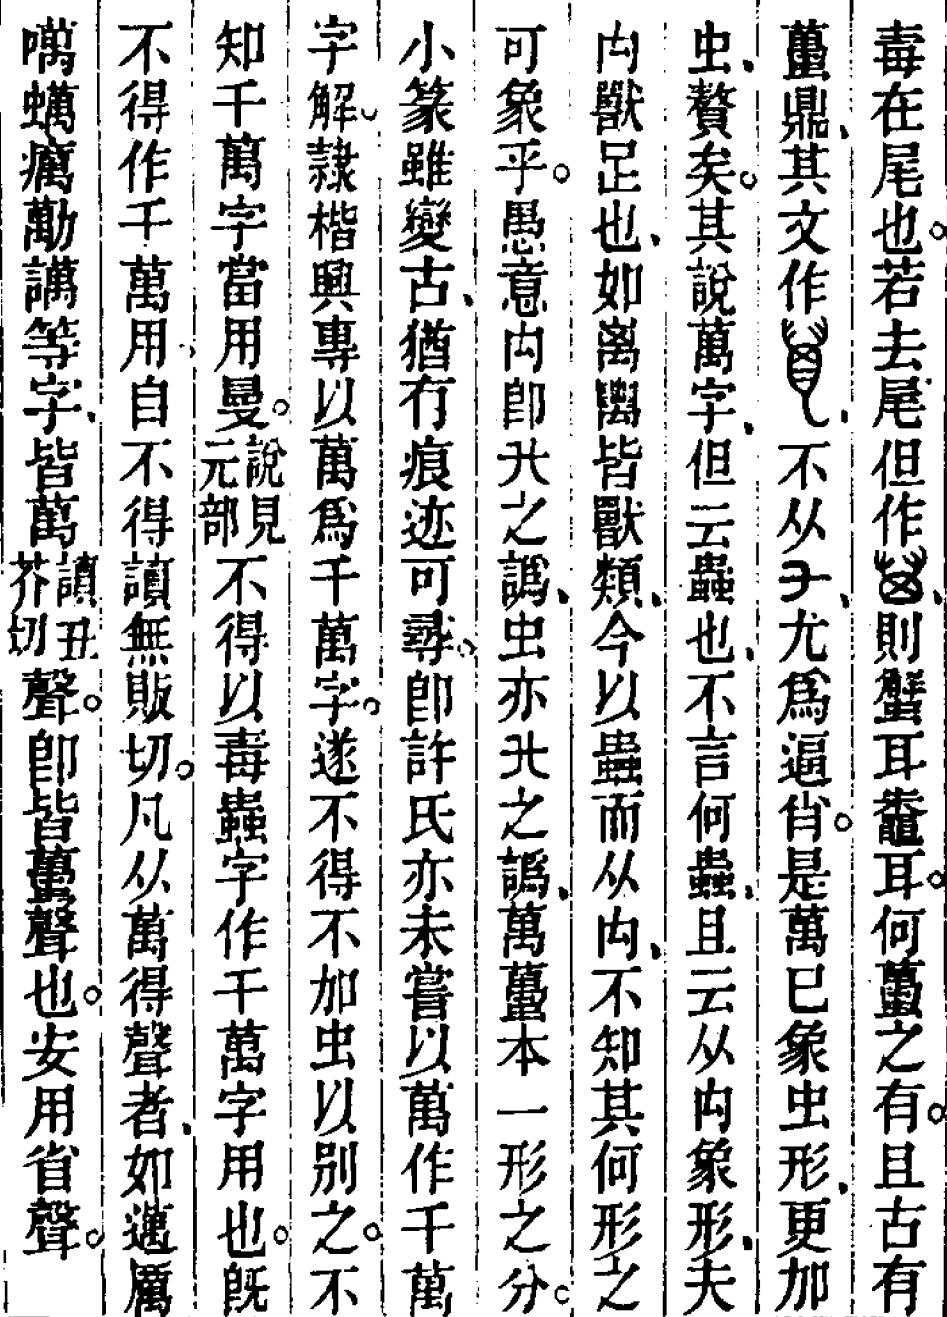 毒在尾也。若去尾但作、則蟹耳鼄耳。何蠆之有。且古有
蠆鼎、其文作、不从チ、尤爲逼肖。是萬已象虫形、更加
虫、贅矣。其說萬字、但云蟲也、不言何蟲、且云从禸象形、夫
禸獸足也、如离禼皆獸類、今以蟲而从禸、不知其何形之
可象乎。愚意禸卽廾之譌、虫亦廾之譌、萬蠆本一形之分。
小篆雖變古、猶有痕迹可尋、卽許氏亦未嘗以萬作千萬
字解。隷楷興專以萬爲千萬字。遂不得不加虫以别之。不
知千萬字當用曼。說見元部不得以毒蟲字作千萬字用也。旣
不得作千萬用、自不得讀無販切。凡从萬得聲者、如邁厲
噧蠇癘勱講等字、皆萬讀丑芥切聲。卽皆蠆聲也。安用省聲。